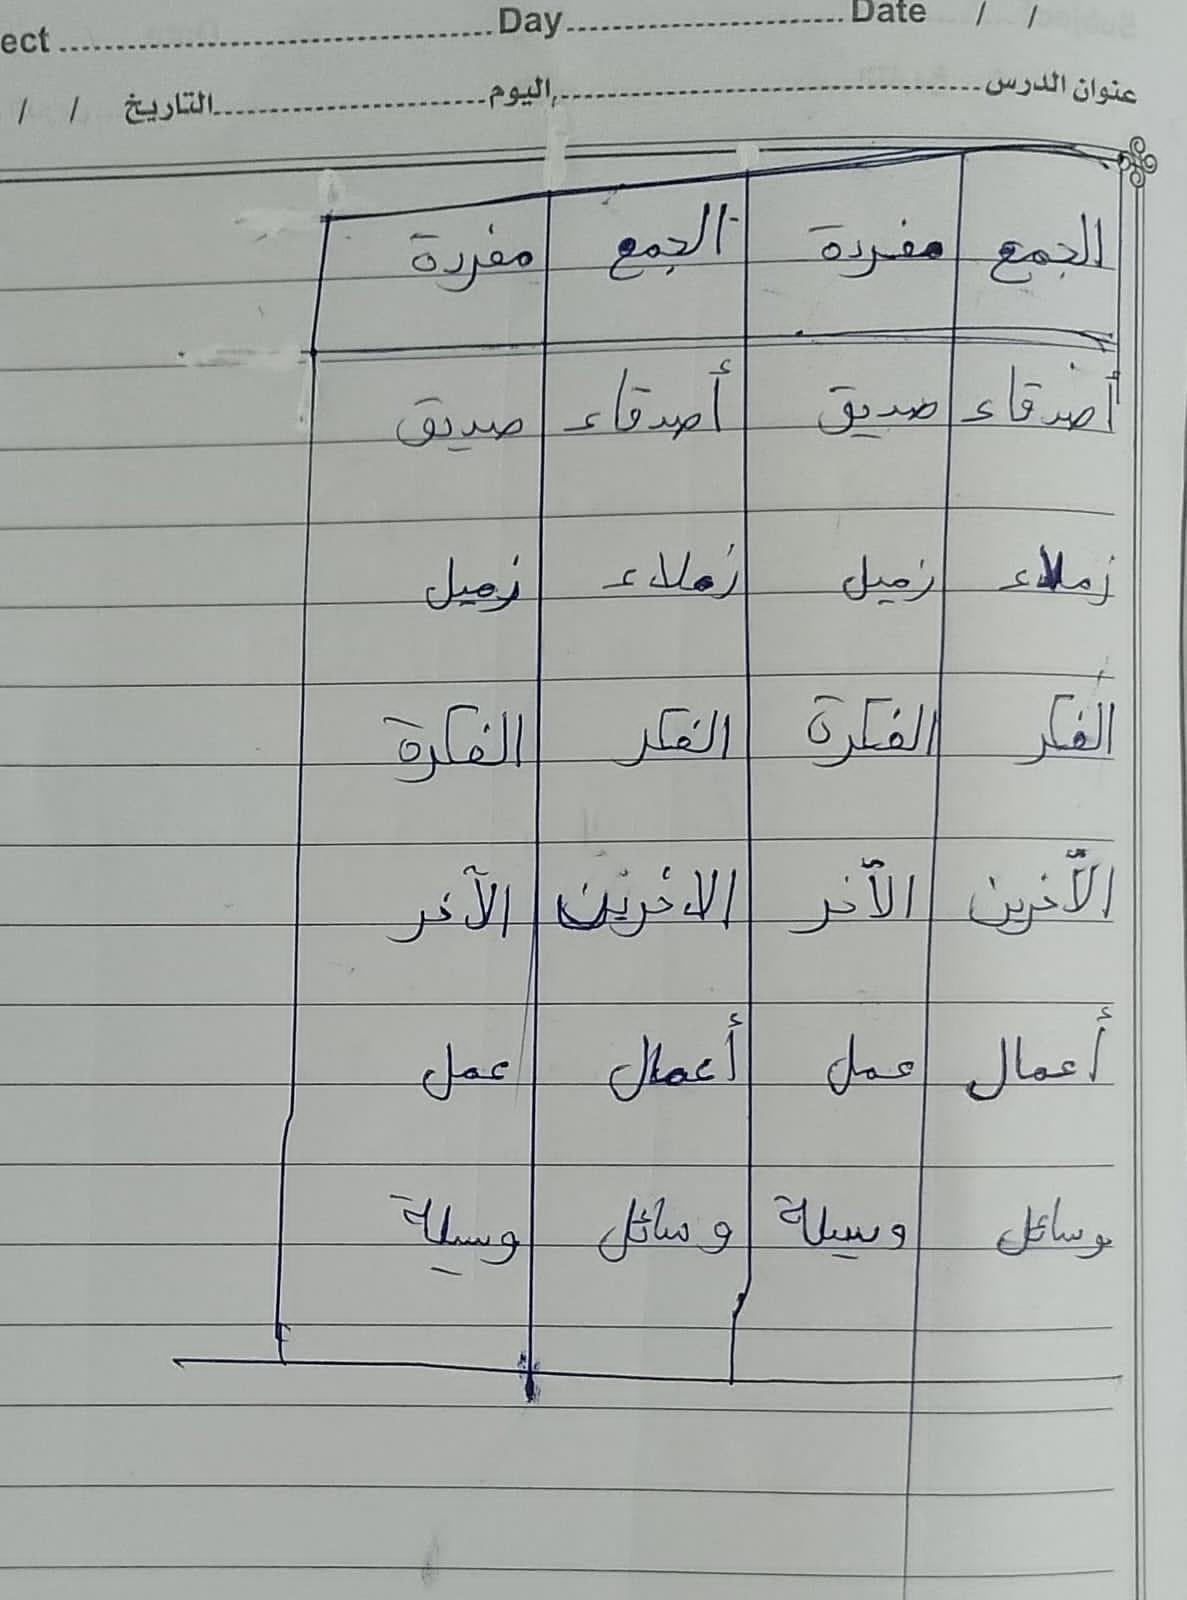 ect Day Date / /
عنوان الدرس اليوم التاريخ / /
الجمع مفردة الجمع مفردة
أصدقاء صديق أصدقاء صديق
زملاء زميل زملاء زميل
الفكر الفكرة الفكر الفكرة
الآخرين الآخر الاخرين الآخر
أعمال عمل أعمال عمل
وسائل وسيلة وسائل وسيلة